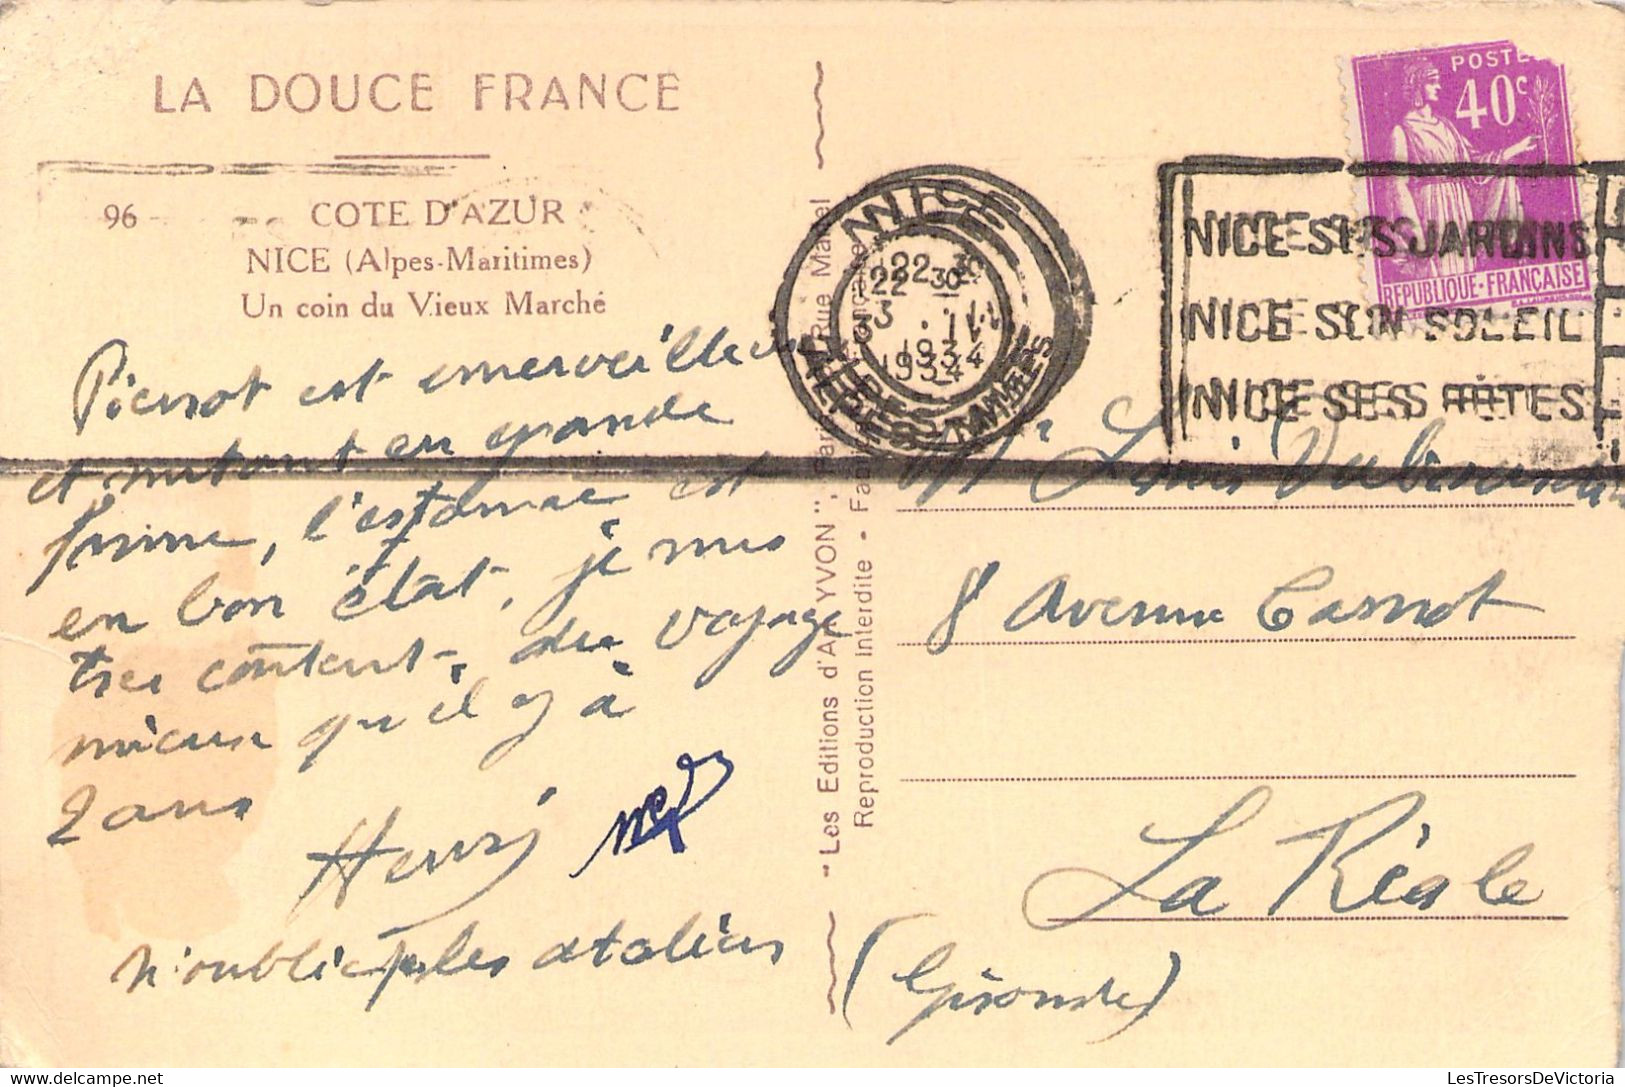 LA DOUCE FRANCE
96 - COTE D'AZUR
NICE (Alpes-Maritimes)
Un coin du Vieux Marché
Pierrot est emerveilleux
et surtout en grande
forme, l'estomac est
en bon état, je suis
tres content, du voyage
mieux qu'il y à
2 ans
Henri
n'oublie pas les
"Les Editions d'Art YVON", Paris, Rue Martel
Reproduction Interdite - Fabrication Française
NICE
ALPES-MARITIMES
22 30
3 . II
1934
NICE SES JARDINS
NICE SON SOLEIL
NICE SES FÊTES
POSTES
40c
REPUBLIQUE·FRANÇAISE
Mr Louis
8 Avenue Carnot
La Réole
(Gironde)
LesTresorsDeVictoria.com